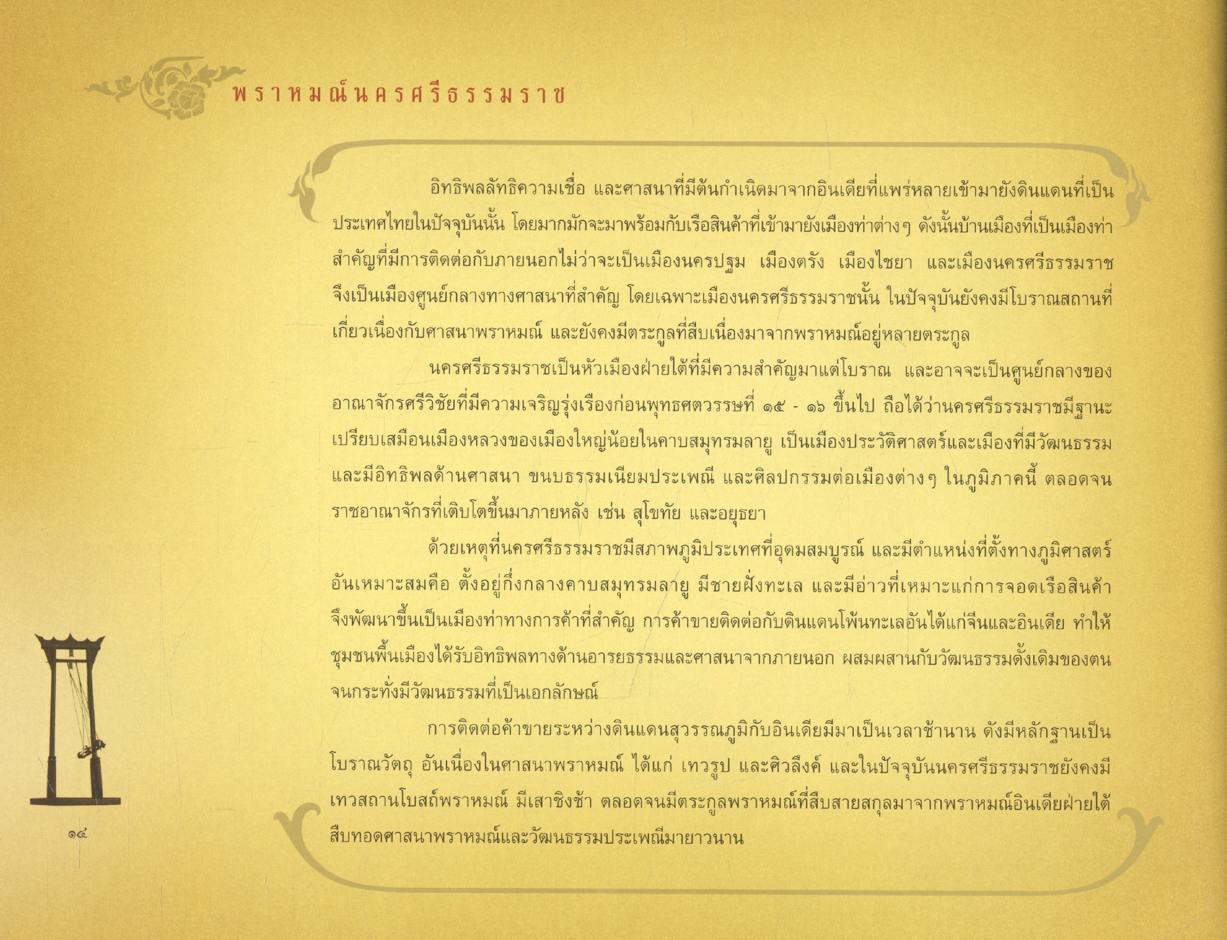 พราหมณ์นครศรีธรรมราช
อิทธิพลลัทธิความเชื่อ และศาสนาที่มีต้นกำเนิดมาจากอินเดียที่แพร่หลายเข้ามายังดินแดนที่เป็น
ประเทศไทยในปัจจุบันนั้น โดยมากมักจะมาพร้อมกับเรือสินค้าที่เข้ามายังเมืองท่าต่างๆ ดังนั้นบ้านเมืองที่เป็นเมืองท่า
สำคัญที่มีการติดต่อกับภายนอกไม่ว่าจะเป็นเมืองนครปฐม เมืองตรัง เมืองไชยา และเมืองนครศรีธรรมราช
จึงเป็นเมืองศูนย์กลางทางศาสนาที่สำคัญ โดยเฉพาะเมืองนครศรีธรรมราชนั้น ในปัจจุบันยังคงมีโบราณสถานที่
เกี่ยวเนื่องกับศาสนาพราหมณ์ และยังคงมีตระกูลที่สืบเนื่องมาจากพราหมณ์อยู่หลายตระกูล
นครศรีธรรมราชเป็นหัวเมืองฝ่ายใต้ที่มีความสำคัญมาแต่โบราณ และอาจจะเป็นศูนย์กลางของ
อาณาจักรศรีวิชัยที่มีความเจริญรุ่งเรืองก่อนพุทธศตวรรษที่ ๑๕ - ๑๖ ขึ้นไป ถือได้ว่านครศรีธรรมราชมีฐานะ
เปรียบเสมือนเมืองหลวงของเมืองใหญ่น้อยในคาบสมุทรมลายู เป็นเมืองประวัติศาสตร์และเมืองที่มีวัฒนธรรม
และมีอิทธิพลด้านศาสนา ขนบธรรมเนียมประเพณี และศิลปกรรมต่อเมืองต่างๆ ในภูมิภาคนี้ ตลอดจน
ราชอาณาจักรที่เติบโตขึ้นมาภายหลัง เช่น สุโขทัย และอยุธยา
ด้วยเหตุที่นครศรีธรรมราชมีสภาพภูมิประเทศที่อุดมสมบูรณ์ และมีตำแหน่งที่ตั้งทางภูมิศาสตร์
อันเหมาะสมคือ ตั้งอยู่กึ่งกลางคาบสมุทรมลายู มีชายฝั่งทะเล และมีอ่าวที่เหมาะแก่การจอดเรือสินค้า
จึงพัฒนาขึ้นเป็นเมืองท่าทางการค้าที่สำคัญ การค้าขายติดต่อกับดินแดนโพ้นทะเลอันได้แก่จีนและอินเดีย ทำให้
ชุมชนพื้นเมืองได้รับอิทธิพลทางด้านอารยธรรมและศาสนาจากภายนอก ผสมผสานกับวัฒนธรรมดั้งเดิมของตน
จนกระทั่งมีวัฒนธรรมที่เป็นเอกลักษณ์
การติดต่อค้าขายระหว่างดินแดนสุวรรณภูมิกับอินเดียมีมาเป็นเวลาช้านาน ดังมีหลักฐานเป็น
โบราณวัตถุ อันเนื่องในศาสนาพราหมณ์ ได้แก่ เทวรูป และศิวลึงค์ และในปัจจุบันนครศรีธรรมราชยังคงมี
เทวสถานโบสถ์พราหมณ์ มีเสาชิงช้า ตลอดจนมีตระกูลพราหมณ์ที่สืบสายสกุลมาจากพราหมณ์อินเดียฝ่ายใต้
สืบทอดศาสนาพราหมณ์และวัฒนธรรมประเพณีมายาวนาน
๑๔